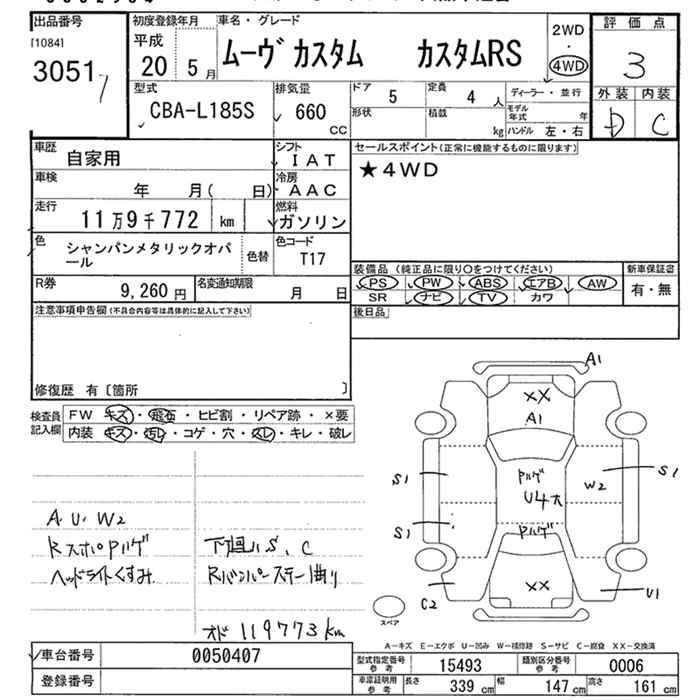 出品番号
[1084]
3051
初度登録年月
平成
20 5 月
車名・グレード
ムーヴ カスタム カスタムRS
2WD
・
4WD
評価点
3
外装 内装
D C
型式
CBA-L185S
排気量
660
CC
ドア
5
定員
4 人
ディーラー・並行
形状
積載
kg
モデル年式 年
ハンドル 左・右
車歴
自家用
シフト
IAT
車検
年 月( 日)
冷房
AAC
走行
11万9千772 km
燃料
ガソリン
色
シャンパンメタリックオパール
色替
色コード
T17
R券
9,260 円
名変通知期限
月 日
セールスポイント(正常に機能するものに限ります)
★4WD
装備品 (純正品に限り○をつけてください)
PS PW ABS エアB AW
SR ナビ TV カワ
新車保証書
有・無
後日品
注意事項申告欄(不具合内容等は具体的に記入して下さい)
修復歴 有〔箇所 〕
検査員記入欄
FW キズ・飛石・ヒビ割・リペア跡・×要
内装 キズ・汚レ・コゲ・穴・スレ・キレ・破レ
A、U、W2
RスポPハゲ
ヘッドライトくすみ
下廻りS、C
Rバンパーステー曲り
オド 119773km
A1
XX
A1
S1
S1
Pハゲ
U4大
Pハゲ
W2
S1
XX
C2
U1
スペア
A－キズ E－エクボ U－凹み W－補修跡 S－サビ C－腐食 XX－交換済
車台番号 0050407
登録番号
型式指定番号 参考 15493
類別区分番号 参考 0006
車庫証明用 参考 長さ 339 cm 幅 147 cm 高さ 161 cm